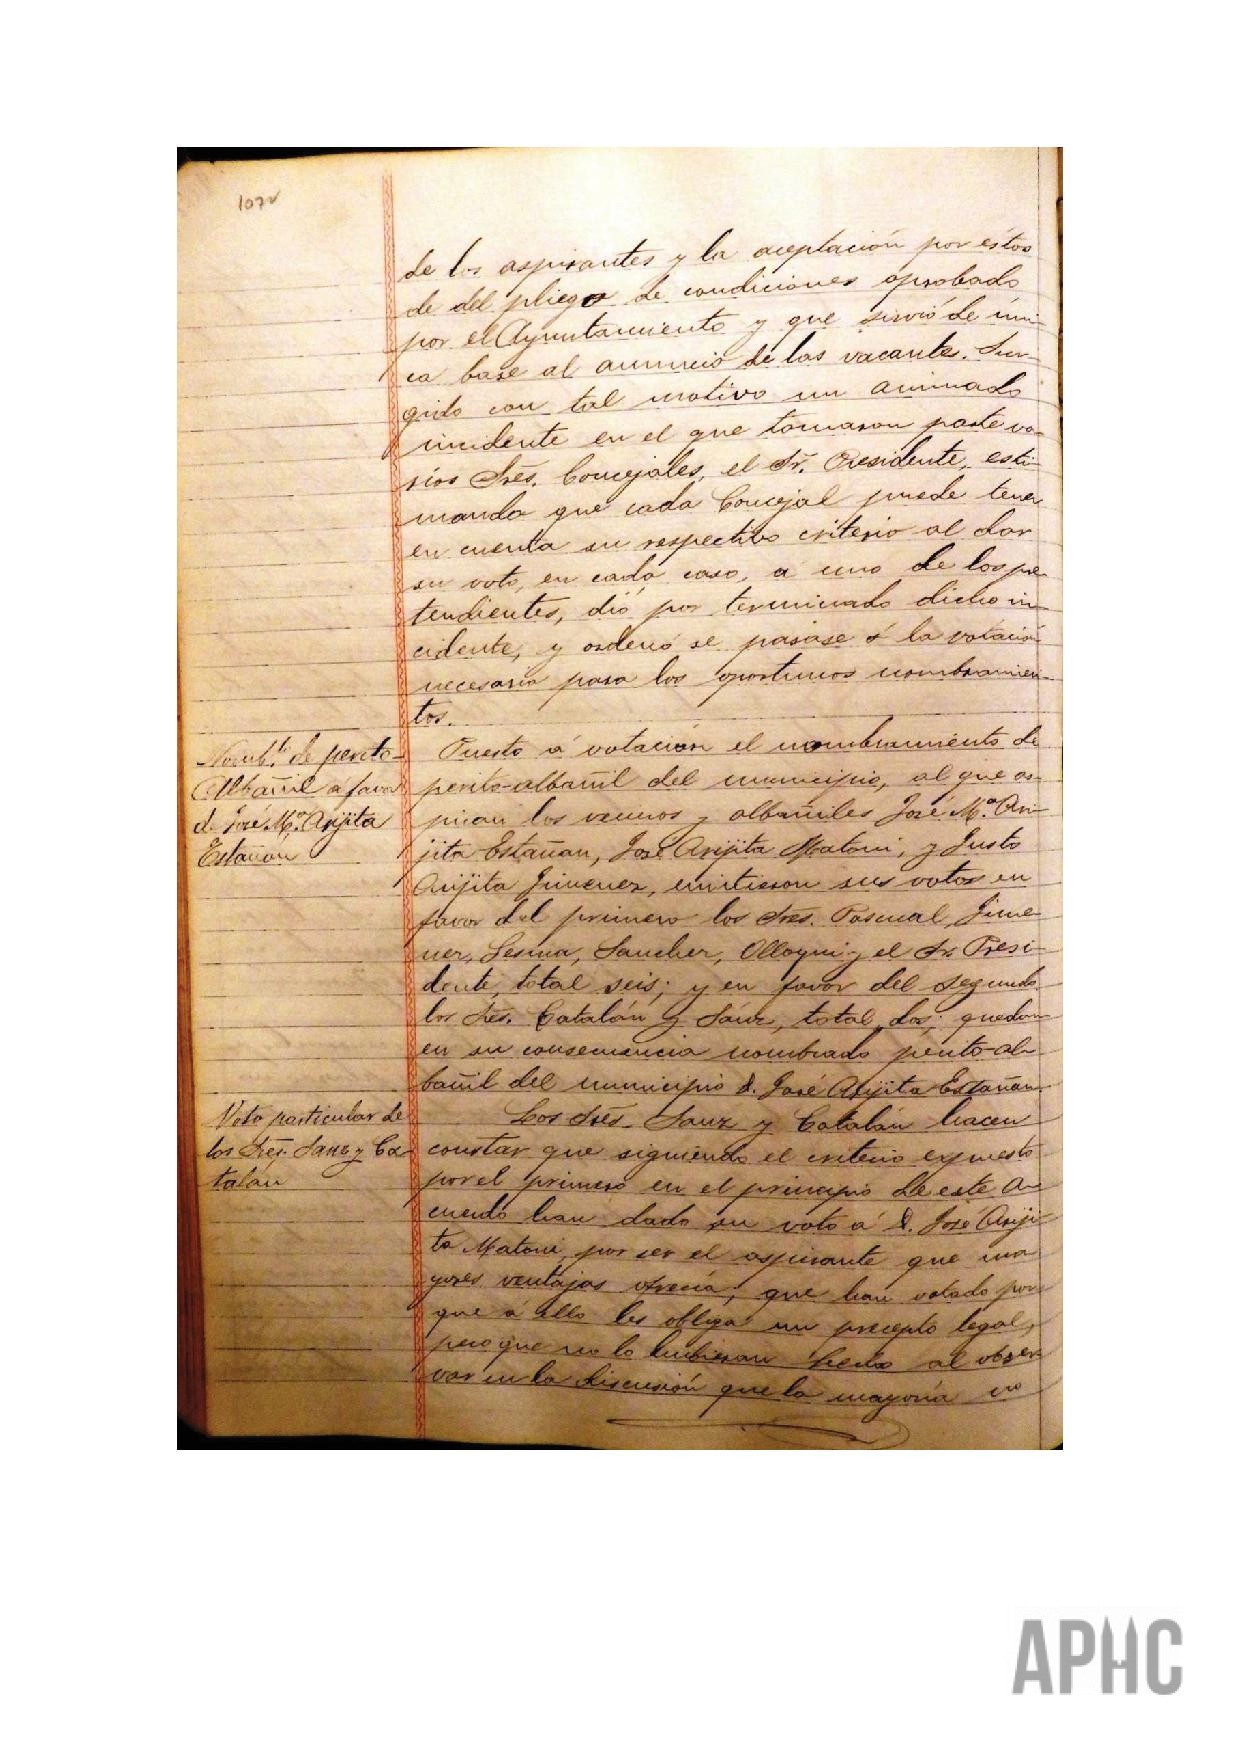 107v
de los aspirantes y la aceptación por éstos
de del pliego de condiciones aprobado
por el Ayuntamiento y que sirvió de úni-
ca base al anuncio de las vacantes. Sur-
gido con tal motivo un animado
incidente en el que tomaron parte va-
rios Sres. Concejales, el Sr. Presidente, esti-
mando que cada Concejal puede tener
en cuenta su respectivo criterio al dar
su voto, en cada caso, á uno de los pre-
tendientes, dió por terminado dicho in-
cidente, y ordenó se pasase á la votación
necesaria para los oportunos nombramien-
tos.
Nombto. de perito-
Albañil á favor
de José Mª. Arijita
Estañan
Puesto á votación el nombramiento de
perito-albañil del municipio, al que as-
piran los vecinos y albañiles José Mª. Ari-
jita Estañan, José Arijita Matoni, y Justo
Arijita Jimenez, emitieron sus votos en
favor del primero los Sres. Pascual, Jime-
nez, Lesma, Sanchez, Olloqui y el Sr. Presi-
dente, total seis; y en favor del segundo
los Sres. Catalán y Sánz, total, dos; quedan
en su consecuencia nombrado perito-al-
bañil del municipio D. José Arijita Estañan.
Voto particular de
los Sres. Sanz y Ca-
talán
Los Sres. Sanz y Catalán hacen
constar que siguiendo el criterio expuesto
por el primero en el principio de este A-
cuerdo han dado su voto á D. José Ariji-
ta Matoni, por ser el aspirante que ma-
yores ventajas ofrecía; que han votado por-
que á ello les obliga un precepto legal,
pero que no lo hubieran hecho al obser-
var en la discusión que la mayoría no
APHC